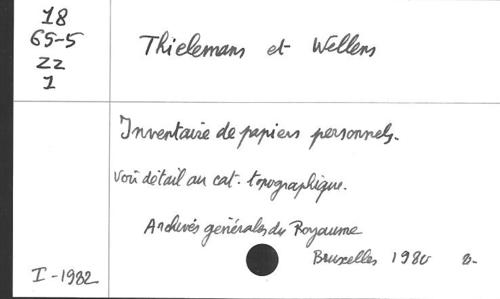 18
65-5
ZZ
1
Thielemans et Wellens
Inventaire de papiers personnels.
voir détail au cat. topographique.
Archives générales du Royaume
Bruxelles 1980 8-
I-1982